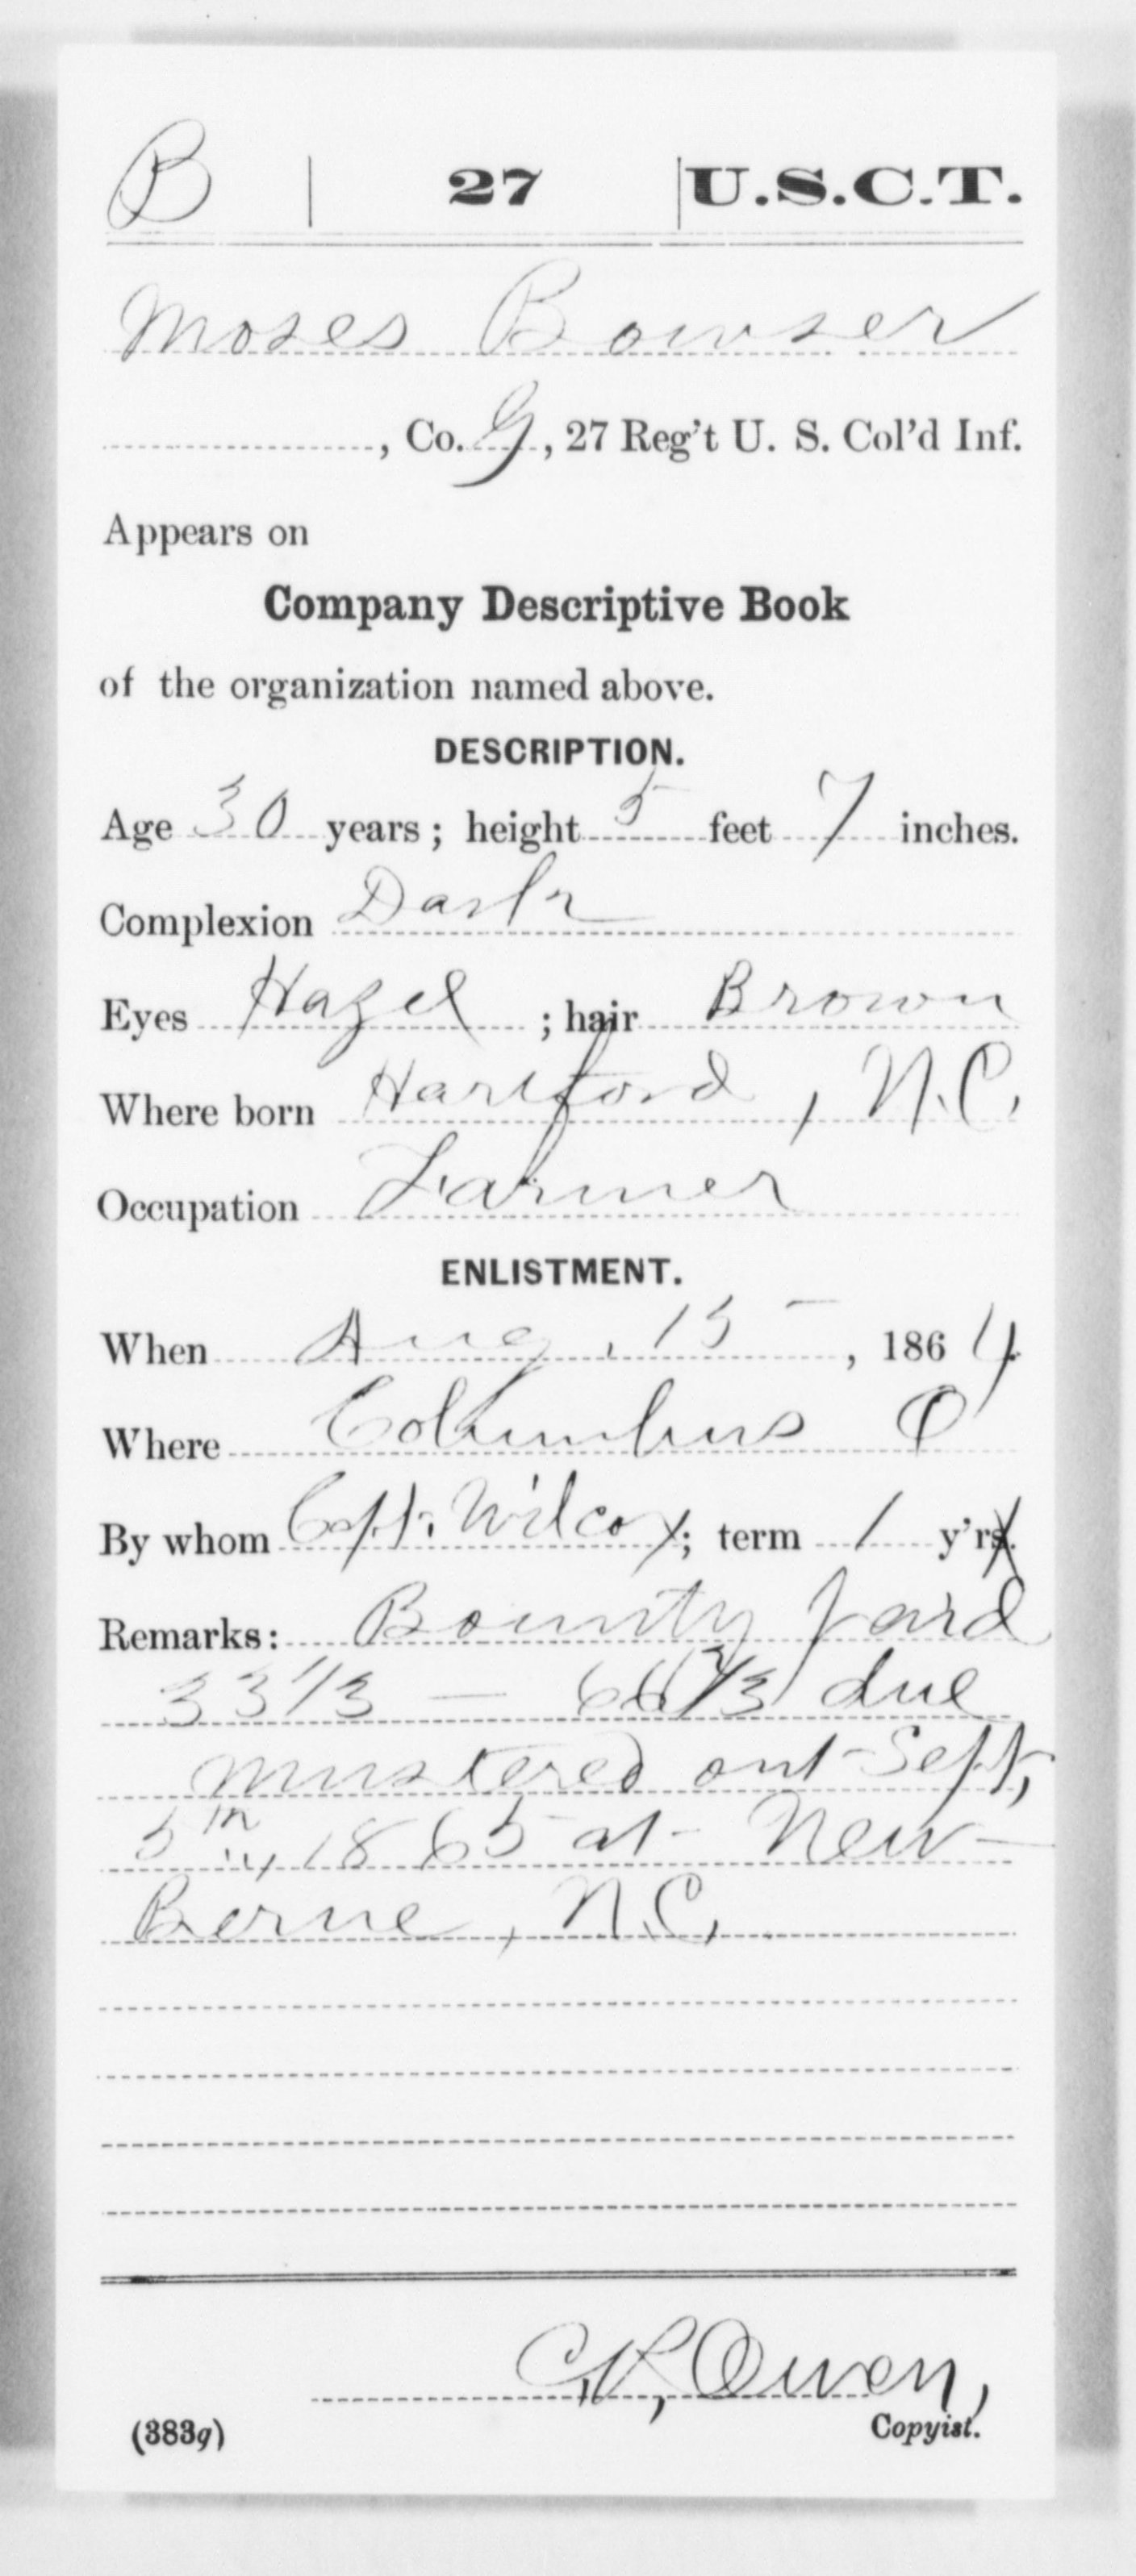 B | 27 | U.S.C.T.
Moses Bowser
, Co. G, 27 Reg't U. S. Col'd Inf.
Appears on
Company Descriptive Book
of the organization named above.
DESCRIPTION.
Age 30 years; height 5 feet 7 inches.
Complexion Dark
Eyes Hazel ; hair Brown
Where born Hartford, N.C.
Occupation Farmer
ENLISTMENT.
When Aug. 15, 1864
Where Columbus O
By whom Capt. Wilcox; term 1 y'rs.
Remarks: Bounty paid
33 1/3 — 66 2/3 due
mustered out Sept,
5th, 1865 at New
Berne, N.C.
C.R. Owen,
(383g) Copyist.